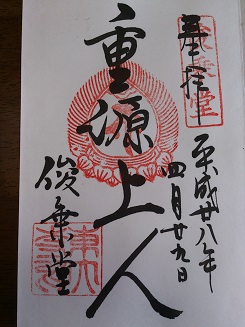 奉拝
平成廿八年
四月廿九日
重源上人
俊乗堂